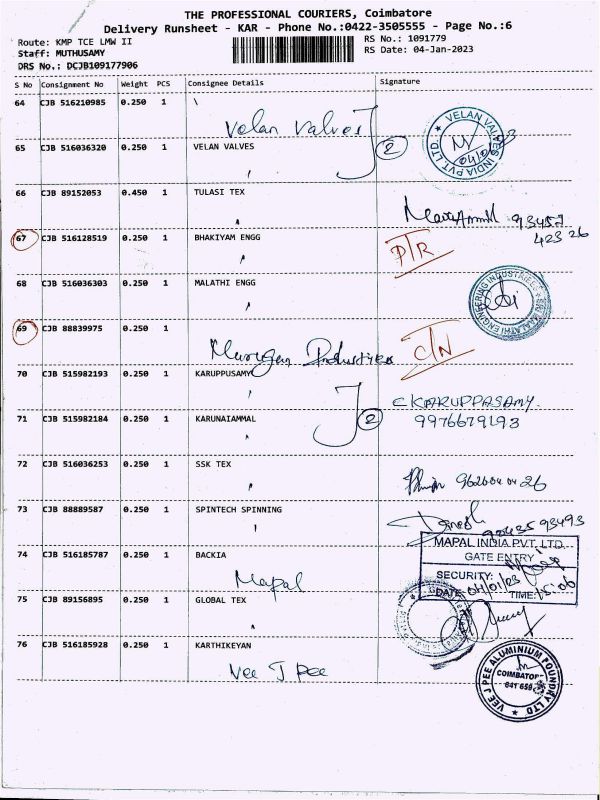 THE PROFESSIONAL COURIERS, Coimbatore
Delivery Runsheet - KAR - Phone No.:0422-3505555 - Page No.:6
Route: KMP TCE LMW II
RS No.: 1091779
Staff: MUTHUSAMY
RS Date: 04-Jan-2023
DRS No.: DCJB109177906
S No Consignment No Weight PCS Consignee Details Signature
64 CJB 516210985 0.250 1 \
Velan Valves
VELAN VALVES INDIA PVT. LTD.
65 CJB 516036320 0.250 1 VELAN VALVES
2
66 CJB 89152053 0.450 1 TULASI TEX
67 CJB 516128519 0.250 1 BHAKIYAM ENGG
PTR
423 26
68 CJB 516036303 0.250 1 MALATHI ENGG
ENGINEERING INDUSTRIES
69 CJB 88839975 0.250 1
Murugan Industries
C/N
70 CJB 515982193 0.250 1 KARUPPUSAMY
C KARUPPASAMY.
9976679193
71 CJB 515982184 0.250 1 KARUNAIAMMAL
2
72 CJB 516036253 0.250 1 SSK TEX
73 CJB 88889587 0.250 1 SPINTECH SPINNING
Dinesh
74 CJB 516185787 0.250 1 BACKIA
Mapal
MAPAL INDIA PVT. LTD.
GATE ENTRY
SECURITY:
DATE: 04/01/23 TIME:
75 CJB 89156895 0.250 1 GLOBAL TEX
76 CJB 516185928 0.250 1 KARTHIKEYAN
Vee J Pee
VEE J PEE ALUMINIUM FOUNDRY LTD
COIMBATORE
641 659